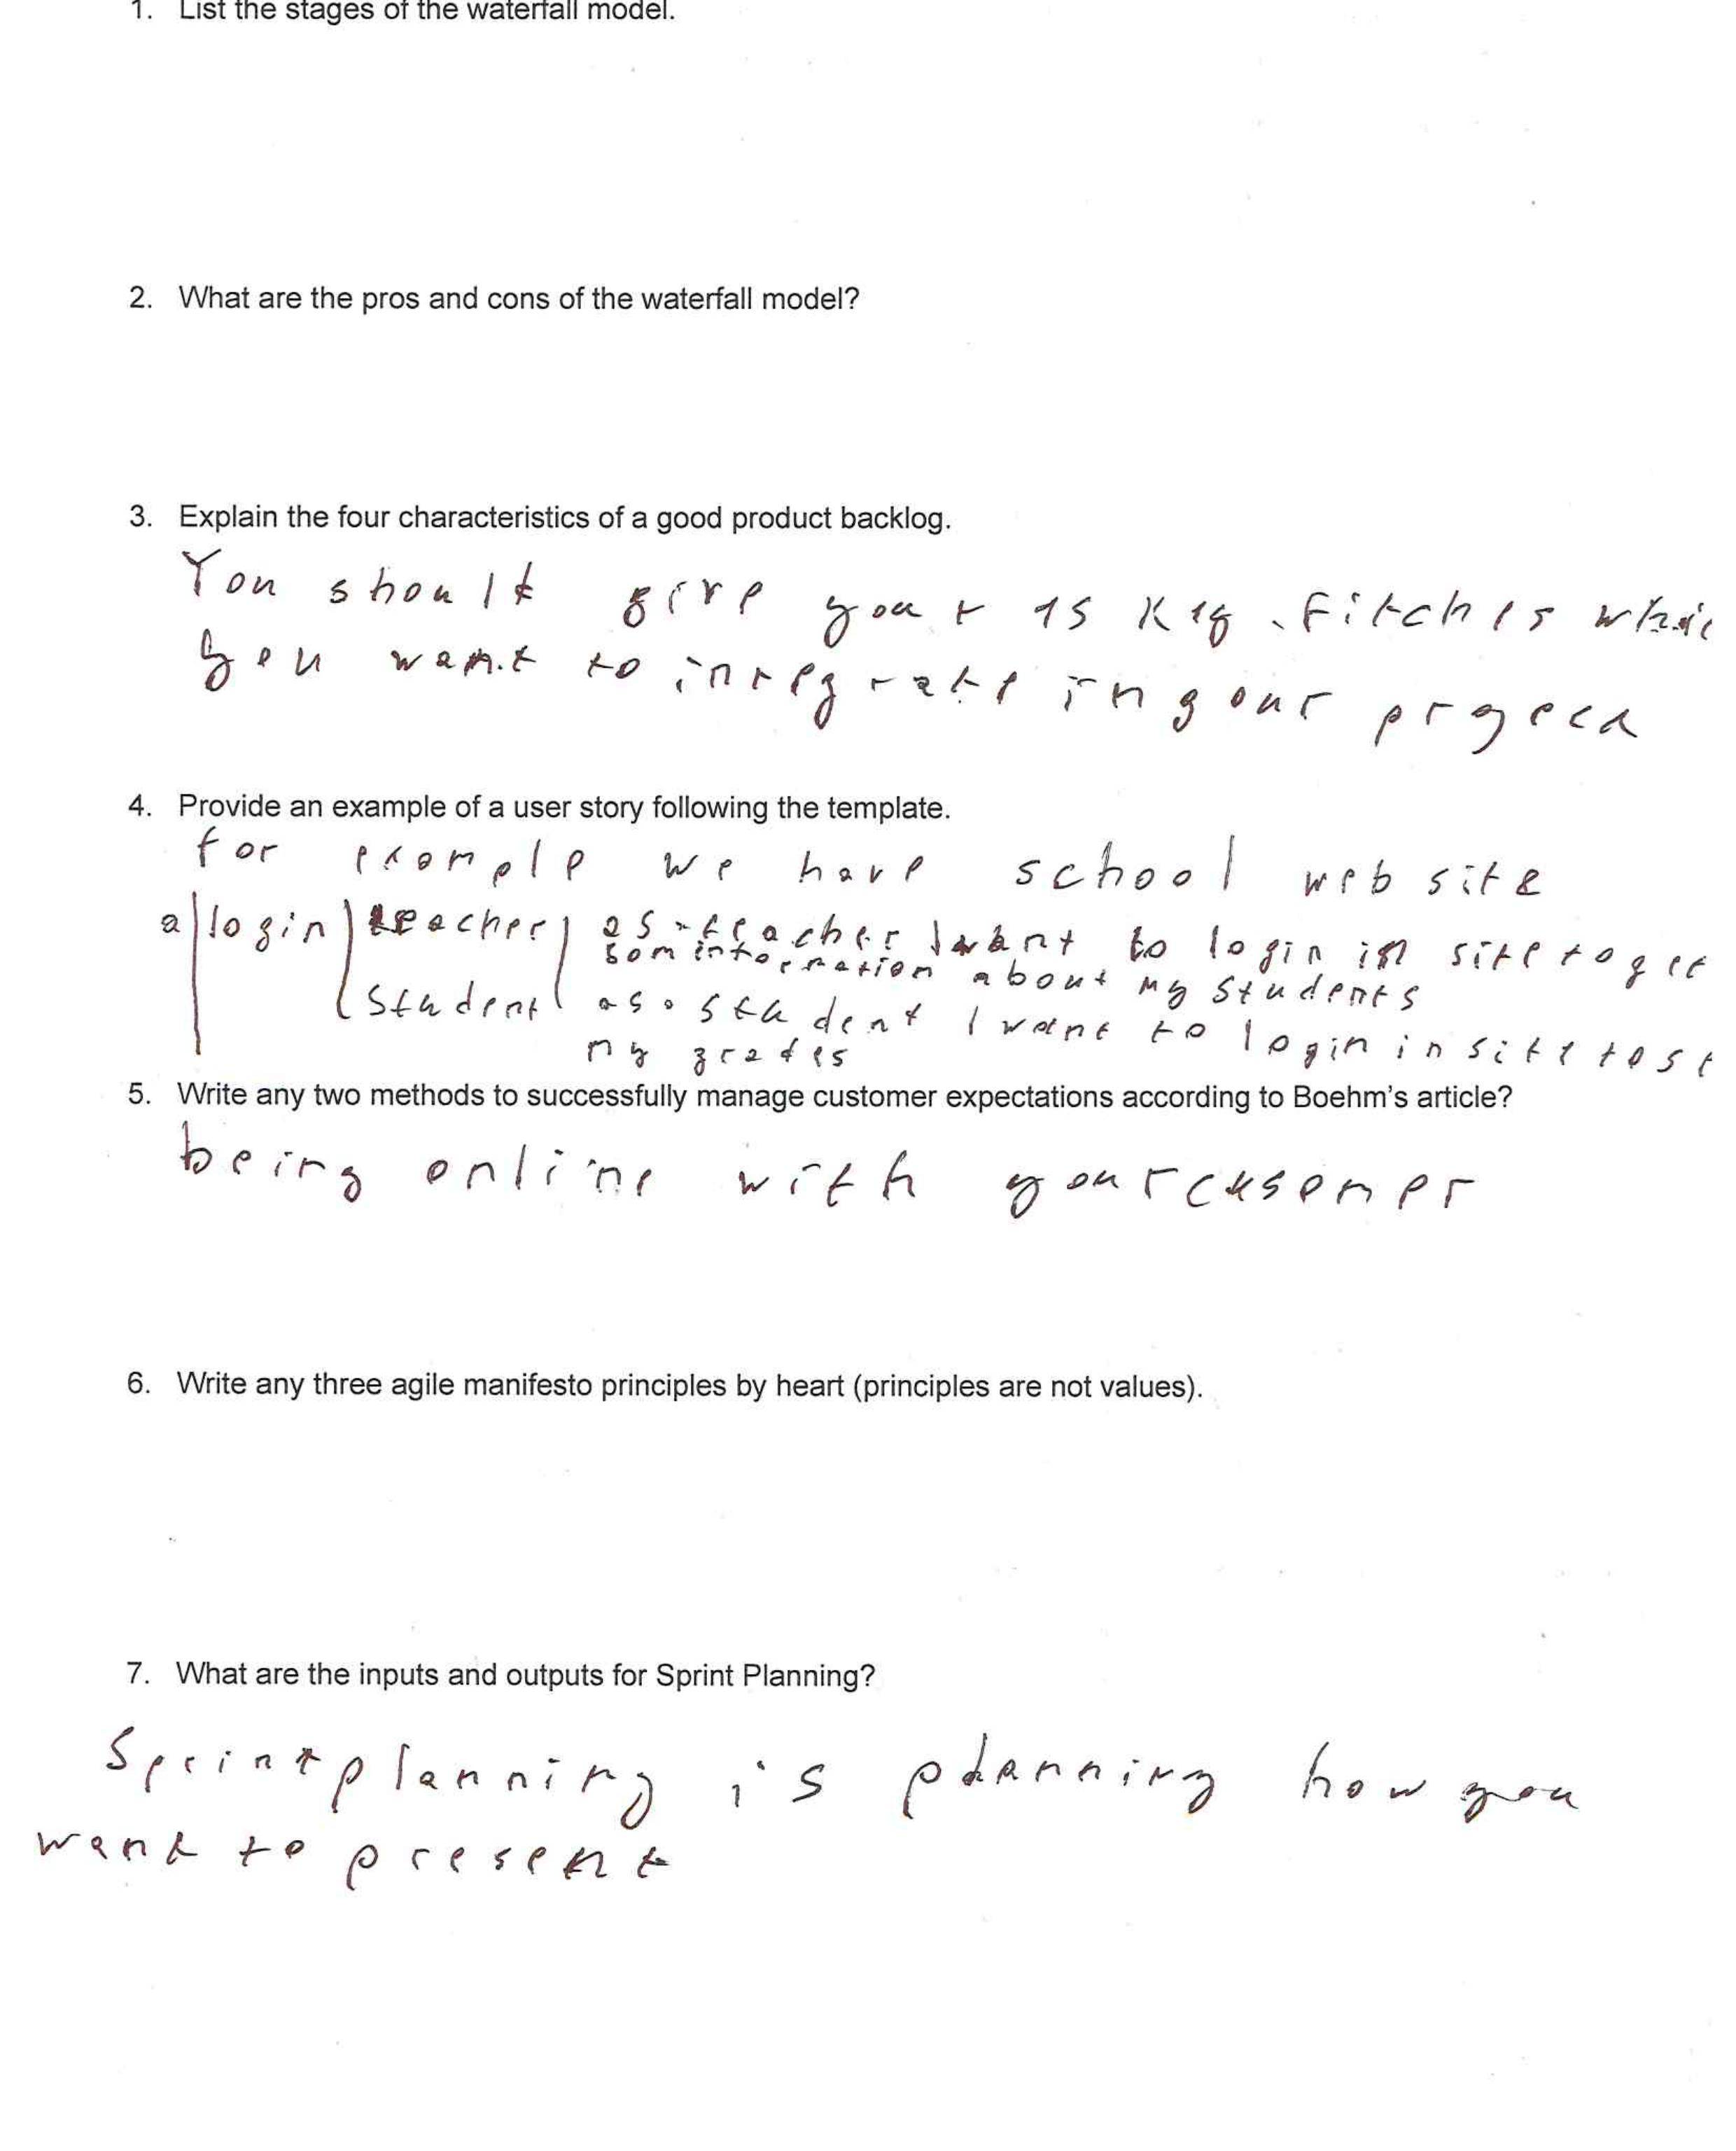 1. List the stages of the waterfall model.
2. What are the pros and cons of the waterfall model?
3. Explain the four characteristics of a good product backlog.
You should give your 15 key fitches
you want to integrate in your
4. Provide an example of a user story following the template.
for exomple we have school web site
a login teacher as a teacher I want to login in site to get
som information about my students
student as a student I want to login in site to se
my grades
5. Write any two methods to successfully manage customer expectations according to Boehm's article?
being online with your
6. Write any three agile manifesto principles by heart (principles are not values).
7. What are the inputs and outputs for Sprint Planning?
Sprint planning is planning how you
want to present